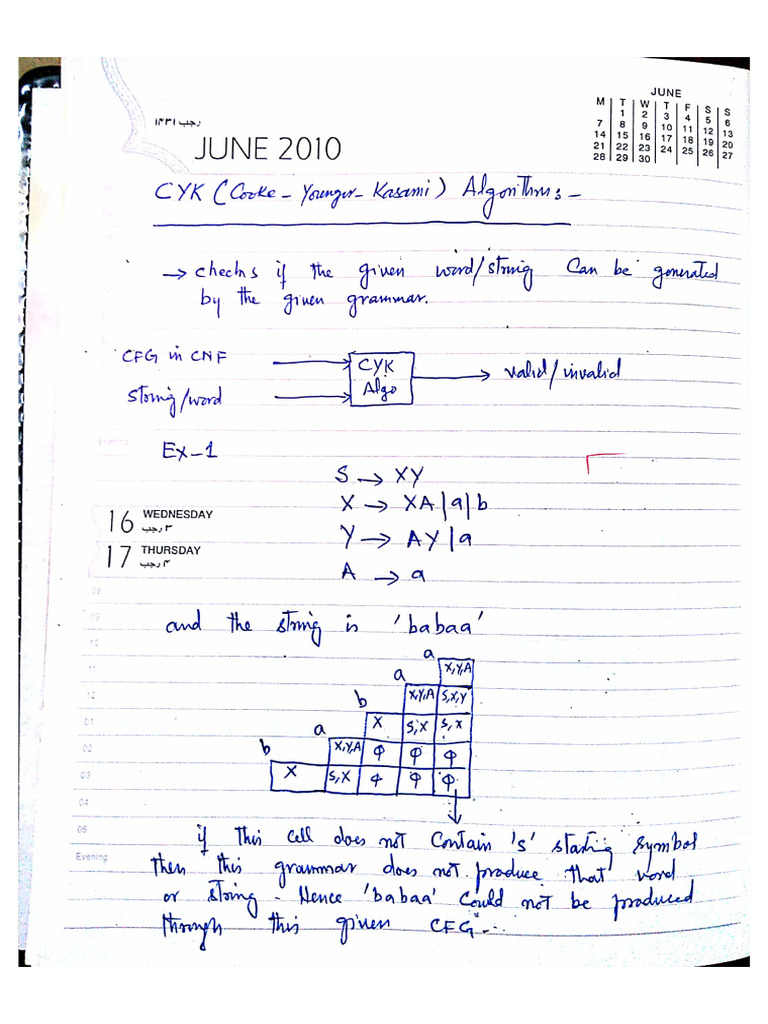 رجب ١٤٣١
JUNE 2010
JUNE
M T W T F S S
1 2 3 4 5 6
7 8 9 10 11 12 13
14 15 16 17 18 19 20
21 22 23 24 25 26 27
28 29 30
CYK (Cooke - Younger - Kasami) Algorithms -
→ checks if the given word/string can be generated
by the given grammar.
CFG in CNF
string/word
CYK
Algo
valid/invalid
Evening
Ex-1
S → XY
X → XA|a|b
Y → AY|a
A → a
16 WEDNESDAY
٣ رجب
17 THURSDAY
٤ رجب
08
09
and the string is 'babaa'
10
a
X,Y,A
11
a
X,Y,A S,X,Y
12
b
X S,X S,X
01
a
X,Y,A φ φ φ
02
b
X S,X φ φ φ
03
04
if this cell does not contain 's' starting symbol
05
then this grammar does not produce that word
Evening
or string - Hence 'babaa' could not be produced
through this given CFG -..